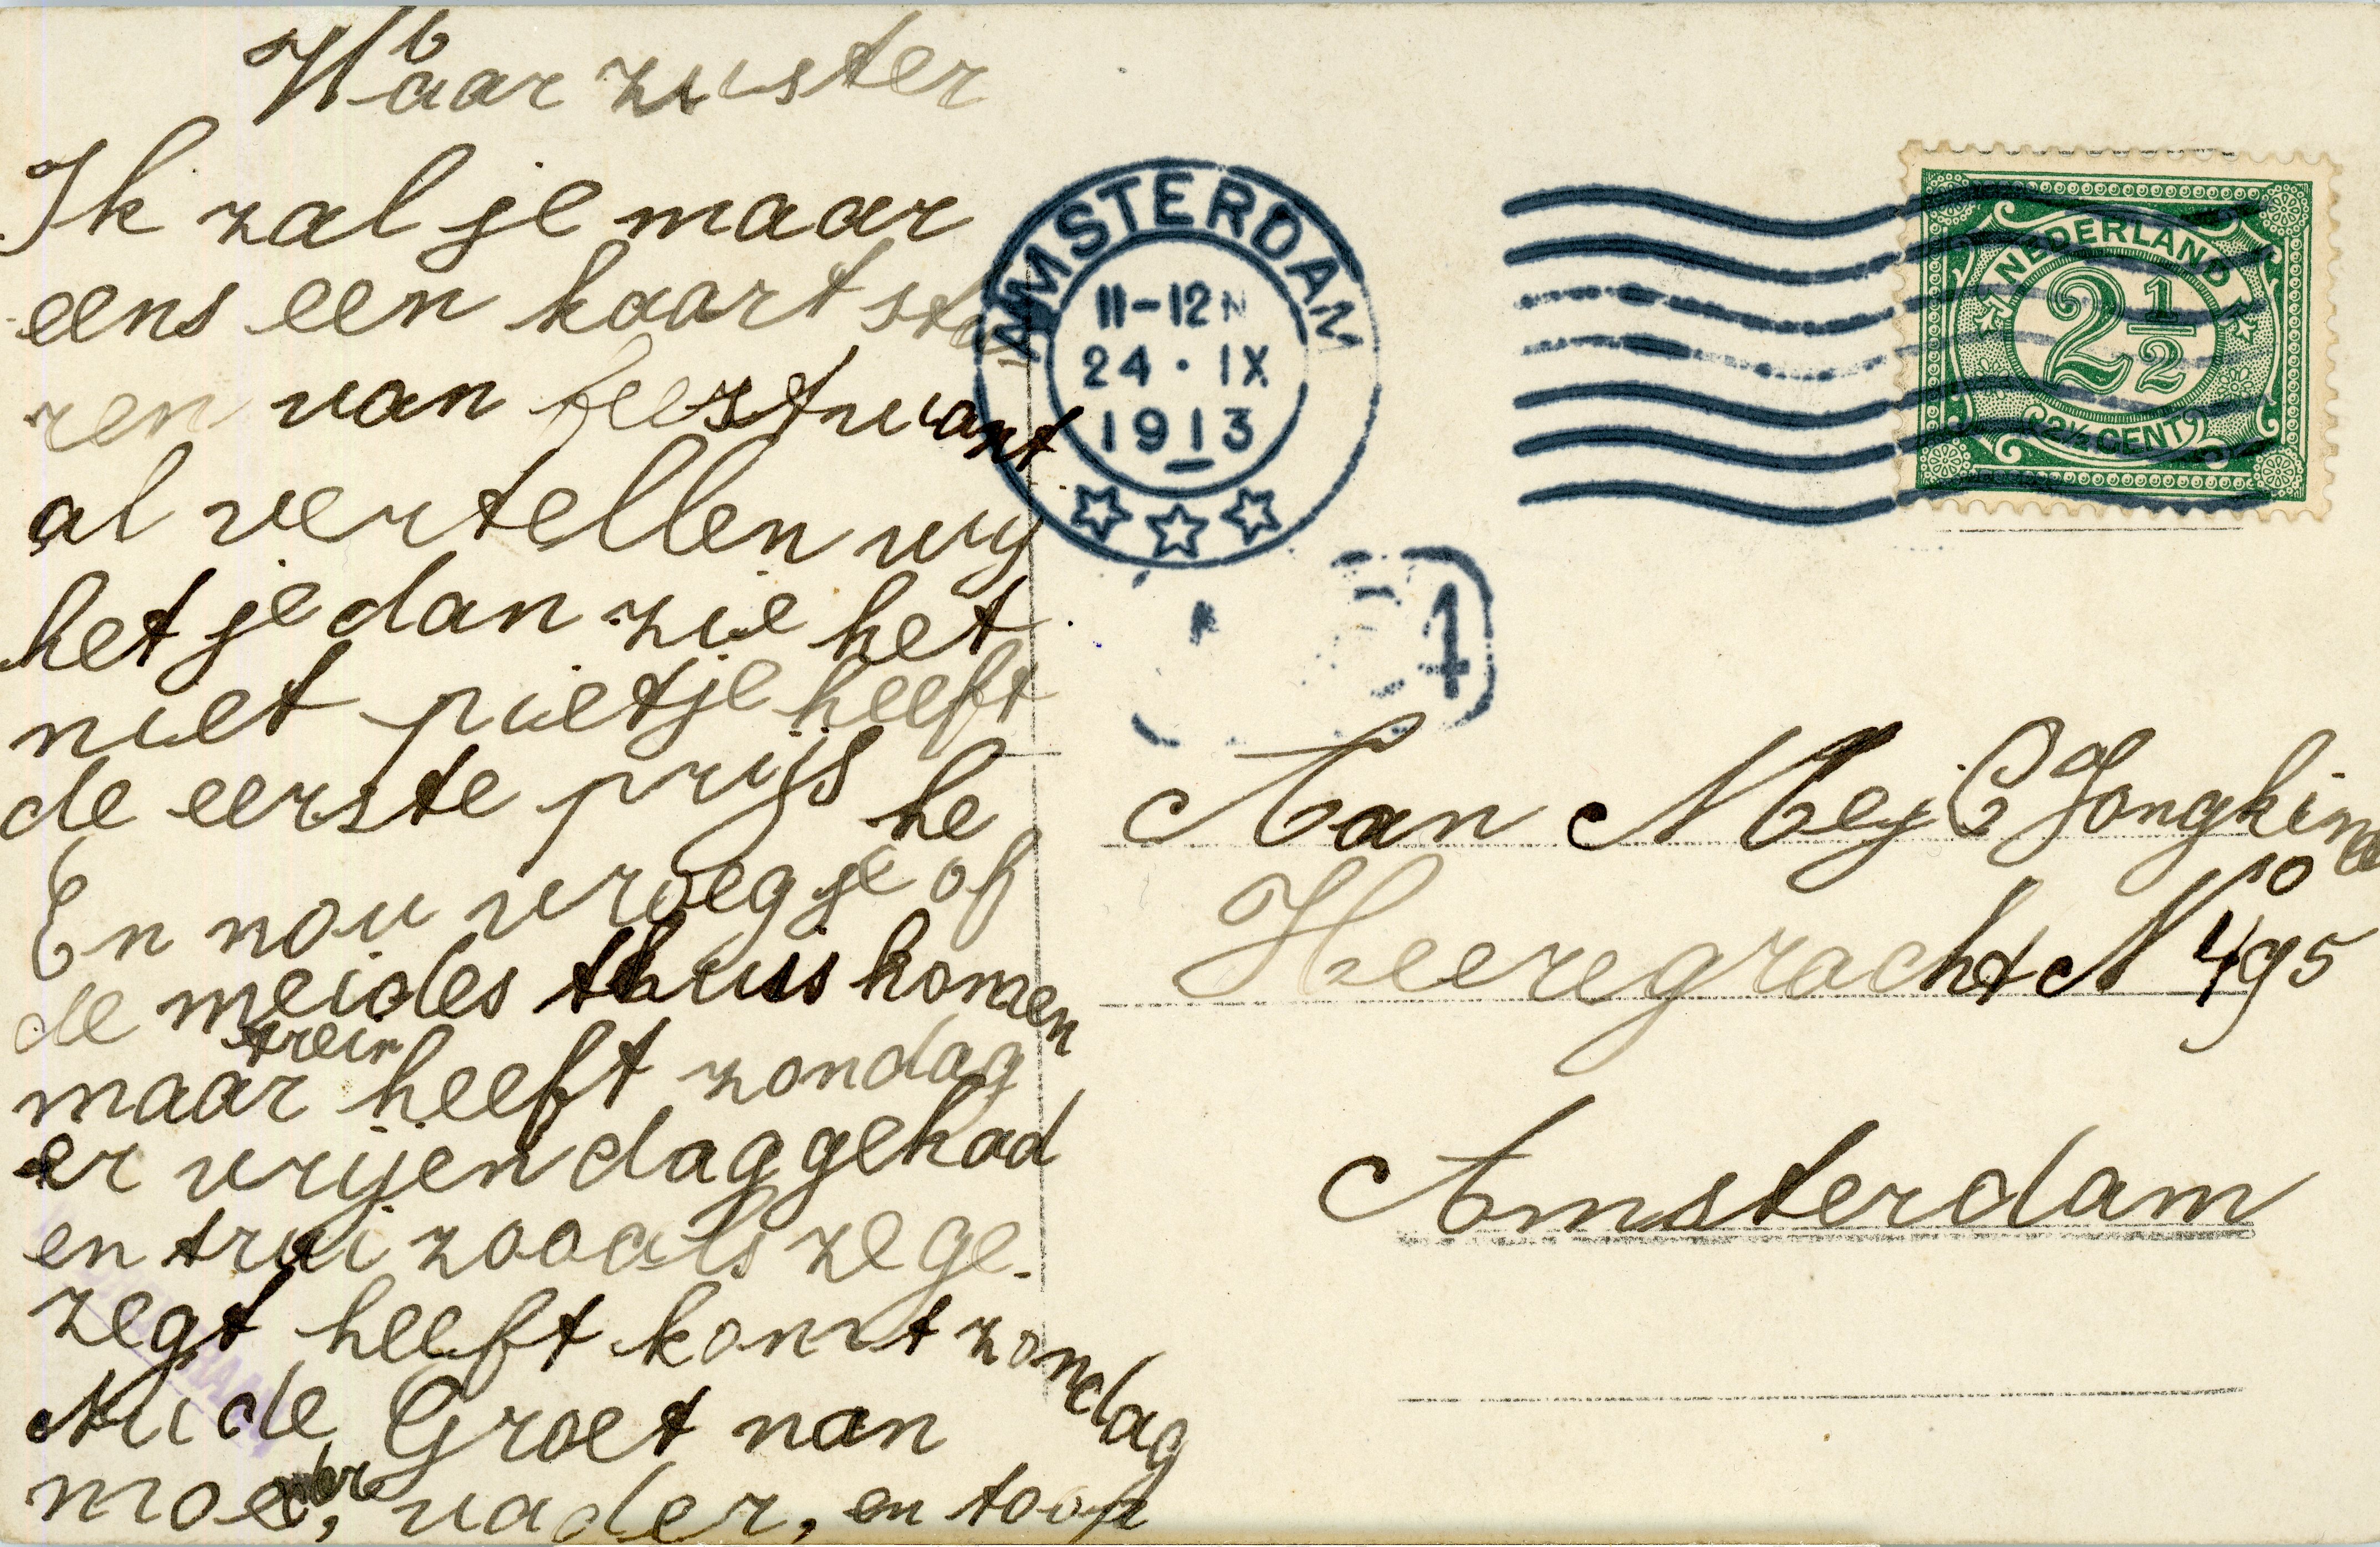 Waar zuster
Ik zal je maar
eens een kaart stu
ren van feest want
al vertellen wij
het je dan zie het
niet pietje heeft
de eerste prijs he
En nou vroeg je of
de meides thuis komen
trein
maar heeft zondag
er vrijen dag gehad
en trui zooals ze ge-
zegt heeft komt zondag
Aude Groet van
moeder, vader, en toon
AMSTERDAM
11-12 N
24 · IX
1913
NEDERLAND
2 1/2
2 1/2 CENT
1
Aan Mej C Jongkind
Heeregracht No 495
Amsterdam